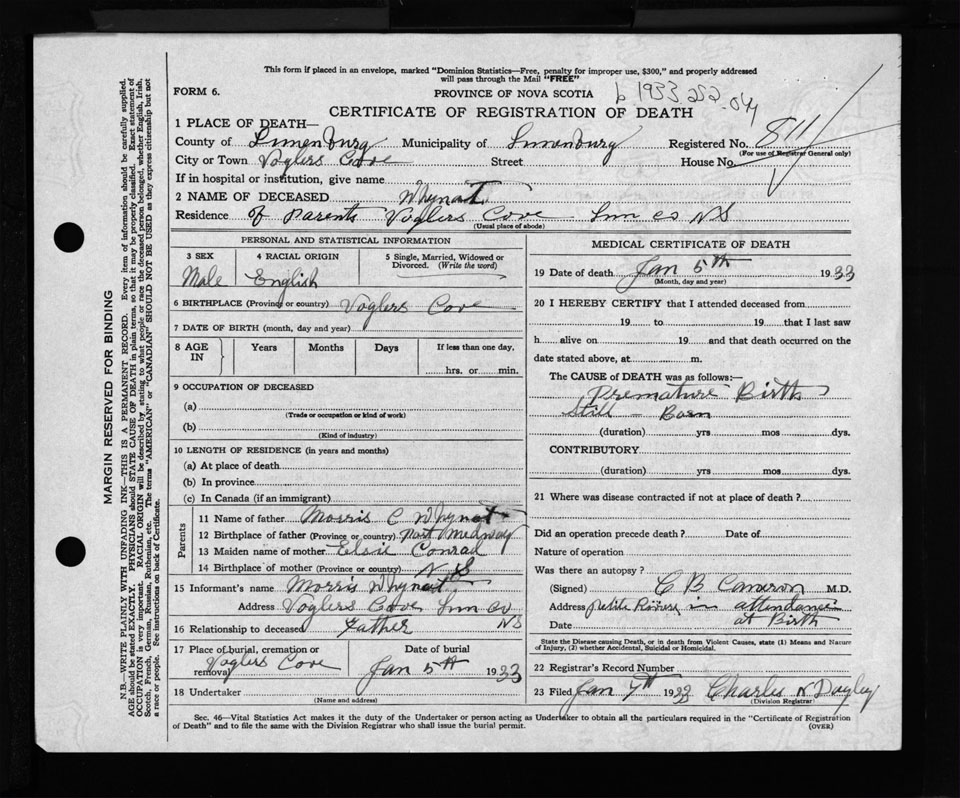 This form if placed in an envelope, marked "Dominion Statistics—Free, penalty for improper use, $300," and properly addressed
will pass through the Mail "FREE"
FORM 6.
PROVINCE OF NOVA SCOTIA
b 1933 252 044
CERTIFICATE OF REGISTRATION OF DEATH
1 PLACE OF DEATH—
County of Lunenburg Municipality of Lunenburg Registered No. 811
(For use of Registrar General only)
City or Town Voglers Cove Street House No.
If in hospital or institution, give name
2 NAME OF DECEASED Whynot
Residence of Parents Voglers Cove Lun co NS
(Usual place of abode)
PERSONAL AND STATISTICAL INFORMATION
3 SEX 4 RACIAL ORIGIN 5 Single, Married, Widowed or
Divorced. (Write the word)
Male English
6 BIRTHPLACE (Province or country) Voglers Cove
7 DATE OF BIRTH (month, day and year)
8 AGE IN Years Months Days If less than one day,
hrs. or min.
9 OCCUPATION OF DECEASED
(a)
(Trade or occupation or kind of work)
(b)
(Kind of industry)
10 LENGTH OF RESIDENCE (in years and months)
(a) At place of death
(b) In province
(c) In Canada (if an immigrant)
Parents
11 Name of father Morris C Whynot
12 Birthplace of father (Province or country) Port Medway
13 Maiden name of mother Elsie Conrad
14 Birthplace of mother (Province or country) N S
15 Informant's name Morris Whynot
Address Voglers Cove Lun co
NS
16 Relationship to deceased Father
17 Place of burial, cremation or removal Date of burial
Voglers Cove Jan 5th 1933
18 Undertaker
(Name and address)
MEDICAL CERTIFICATE OF DEATH
19 Date of death Jan 5th 1933
(Month, day and year)
20 I HEREBY CERTIFY that I attended deceased from
19 to 19 that I last saw
h alive on 19 and that death occurred on the
date stated above, at m.
The CAUSE of DEATH was as follows:—
Premature Birth
Still - Born
(duration) yrs mos dys.
CONTRIBUTORY
(duration) yrs mos dys.
21 Where was disease contracted if not at place of death?
Did an operation precede death? Date of
Nature of operation
Was there an autopsy?
(Signed) C B Cameron M.D.
Address Petite Riviere in attendance
at Birth
Date
State the Disease causing Death, or in death from Violent Causes, state (1) Means and Nature
of Injury, (2) whether Accidental, Suicidal or Homicidal.
22 Registrar's Record Number
23 Filed Jan 7th 1933 Charles N
(Division Registrar)
Sec. 46—Vital Statistics Act makes it the duty of the Undertaker or person acting as Undertaker to obtain all the particulars required in the "Certificate of Registration
of Death" and to file the same with the Division Registrar who shall issue the burial permit.
(OVER)
MARGIN RESERVED FOR BINDING
N.B.—WRITE PLAINLY WITH UNFADING INK—THIS IS A PERMANENT RECORD. Every item of information should be carefully supplied.
AGE should be stated EXACTLY. PHYSICIANS should STATE CAUSE OF DEATH in plain terms, so that it may be properly classified. Exact statement of
OCCUPATION is very important. RACIAL ORIGIN will be described by stating to what people or race the deceased person belonged, whether English, Irish,
Scotch, French, German, Russian, Ruthenian, etc. The terms "AMERICAN" or "CANADIAN" SHOULD NOT BE USED as they express citizenship but not
a race or people. See instructions on back of Certificate.